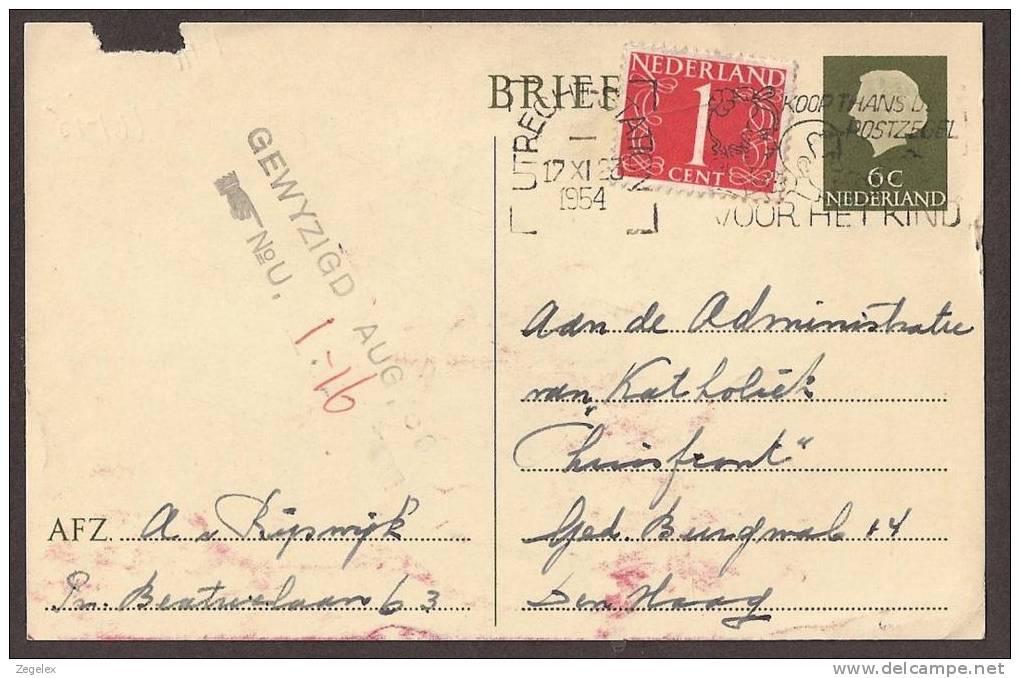 BRIEF
NEDERLAND
1
CENT
6 C
NEDERLAND
UTRECHT-STATION
17 XI 23
1954
KOOP THANS DE
POSTZEGEL
VOOR HET KIND
GEWYZIGD AUG.
No U.
1-16
Aan de Administratie
van Katholiek
"Thuisfront"
Ged. Burgwal 14
Den Haag
AFZ. A v Rijswijk
Pr. Beatrixlaan 63
Zegelex
www.delcampe.net